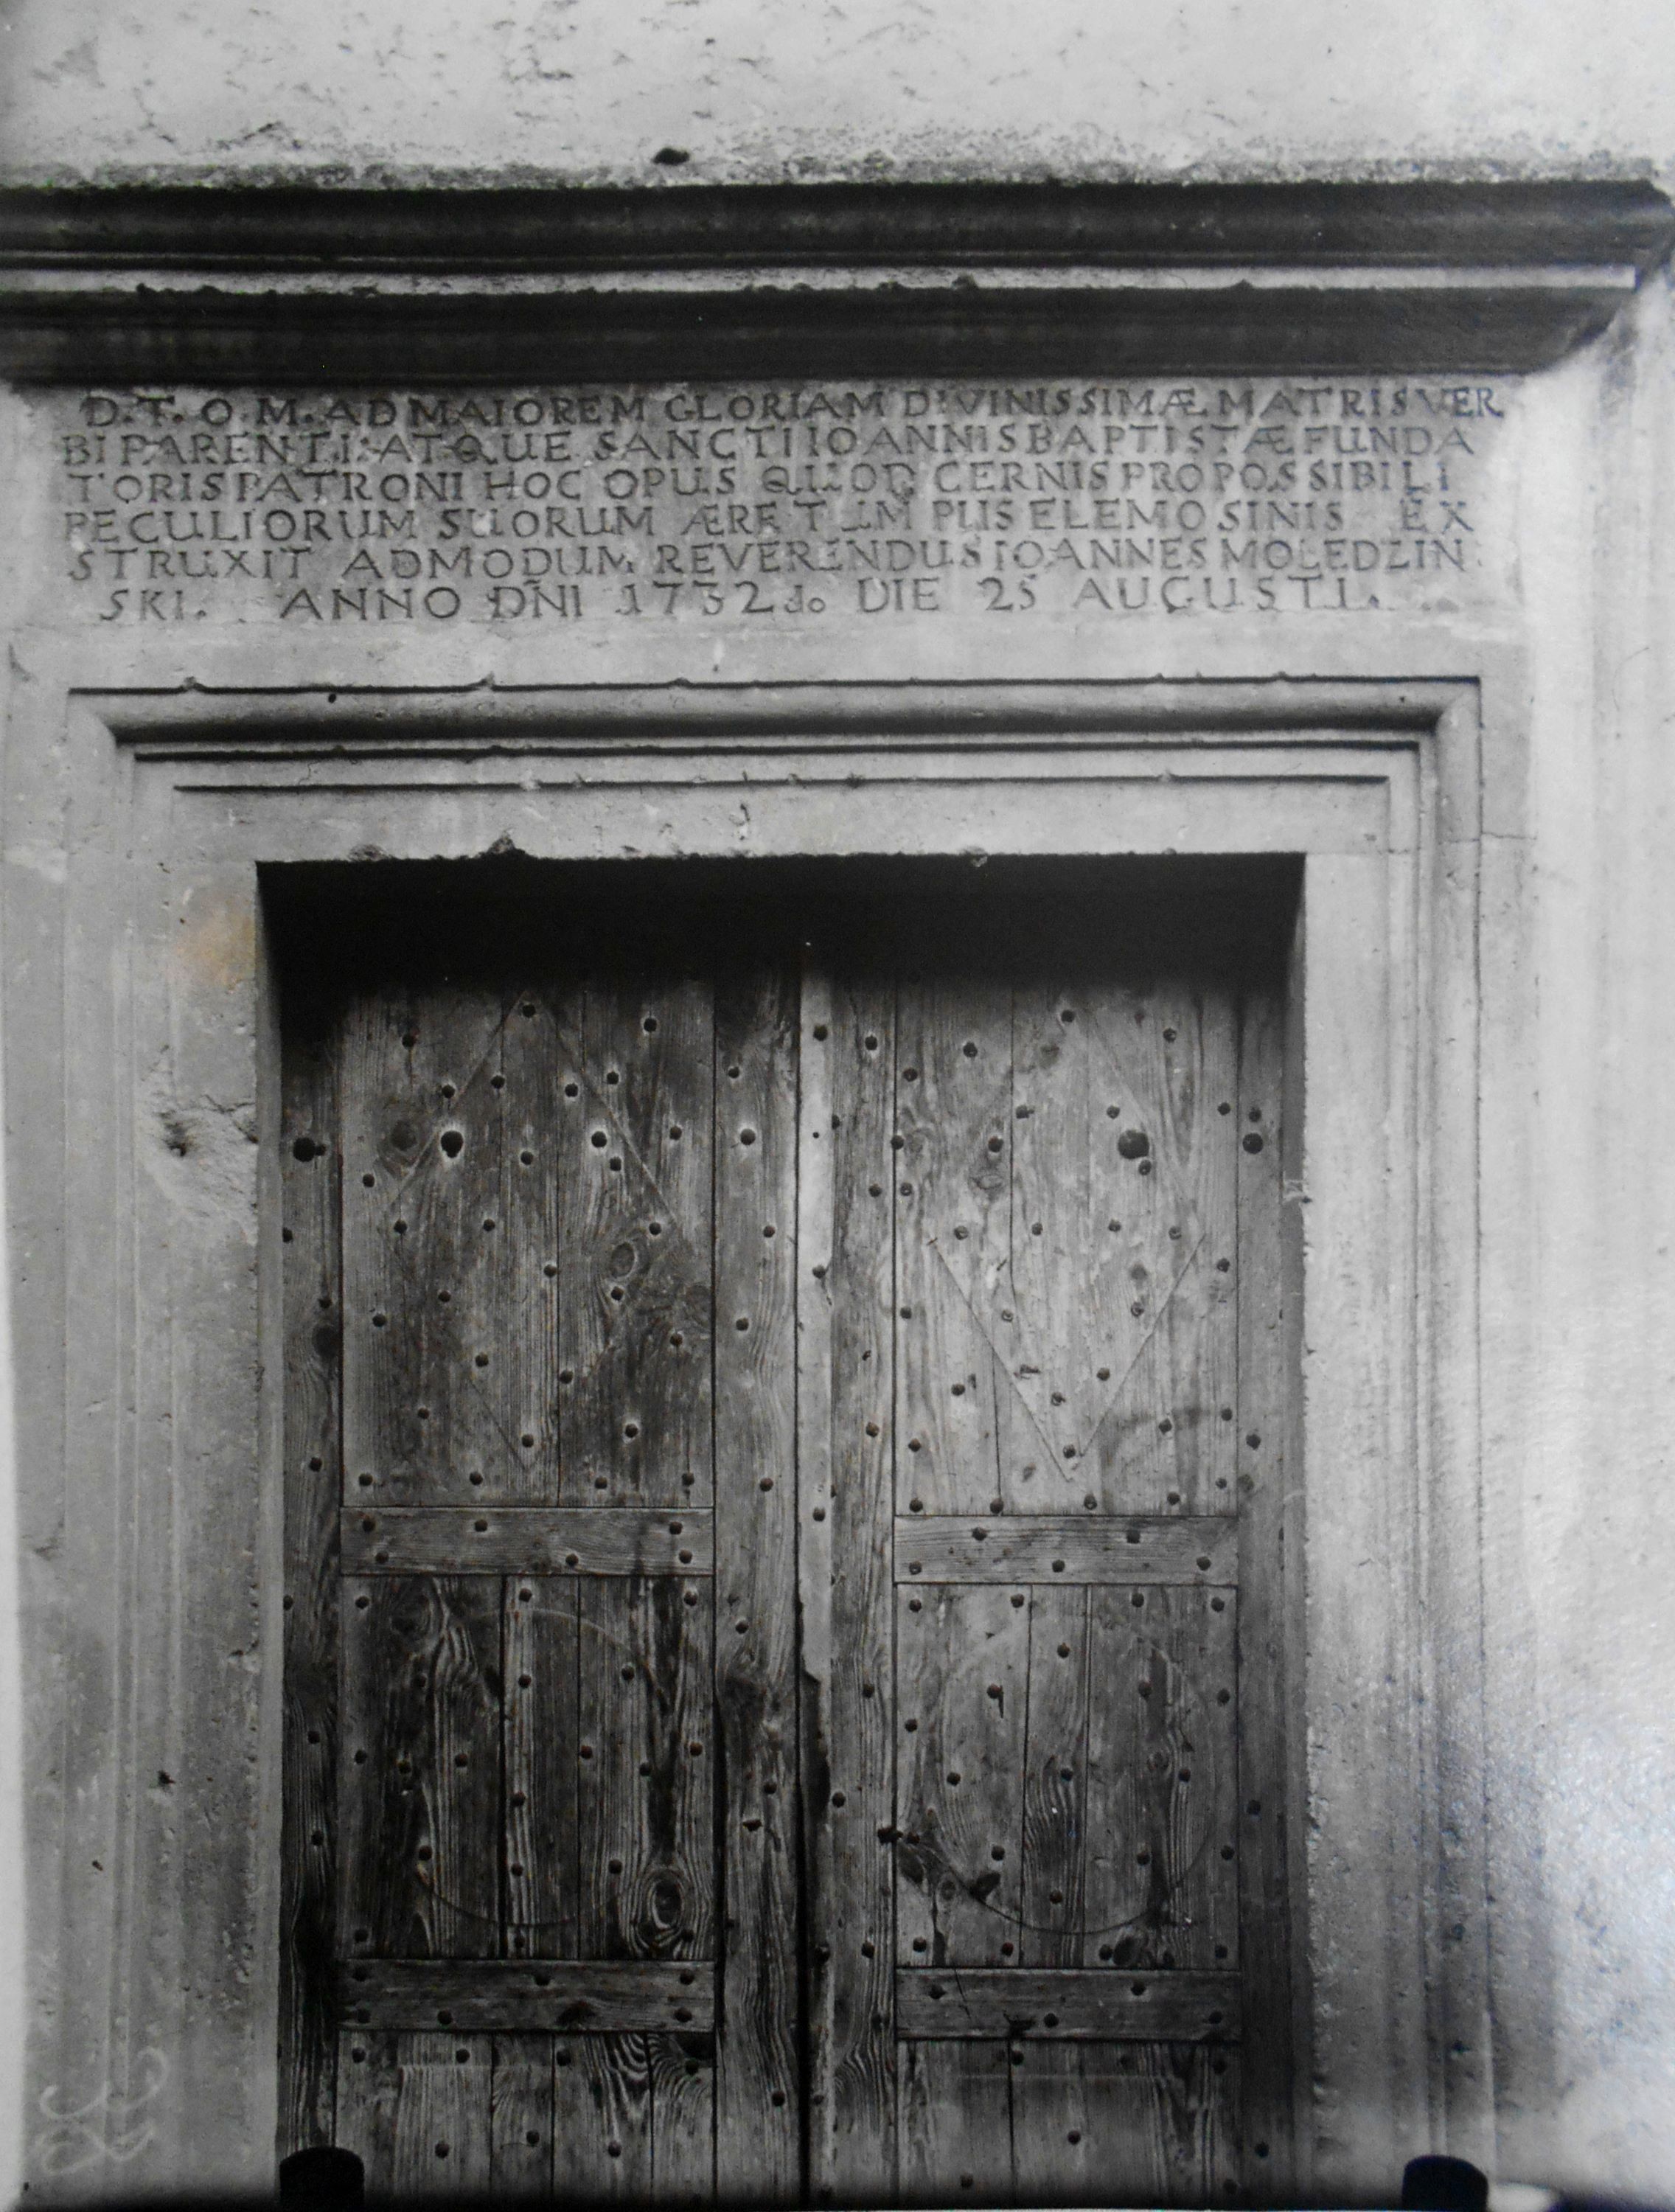 D.T.O.M. AD MAIOREM GLORIAM DIVINISSIMÆ MATRIS VER
BI PARENTI: ATQUE SANCTI IOANNIS BAPTISTÆ FUNDA
TORIS PATRONI HOC OPUS QUOD CERNIS PRO POSSIBILI
PECULIORUM SUORUM ÆRE TUM PIIS ELEMOSINIS EX
STRUXIT ADMODUM REVERENDUS IOANNES MOLEDZIN
SKI. ANNO DÑI 1732do DIE 25 AUGUSTI.